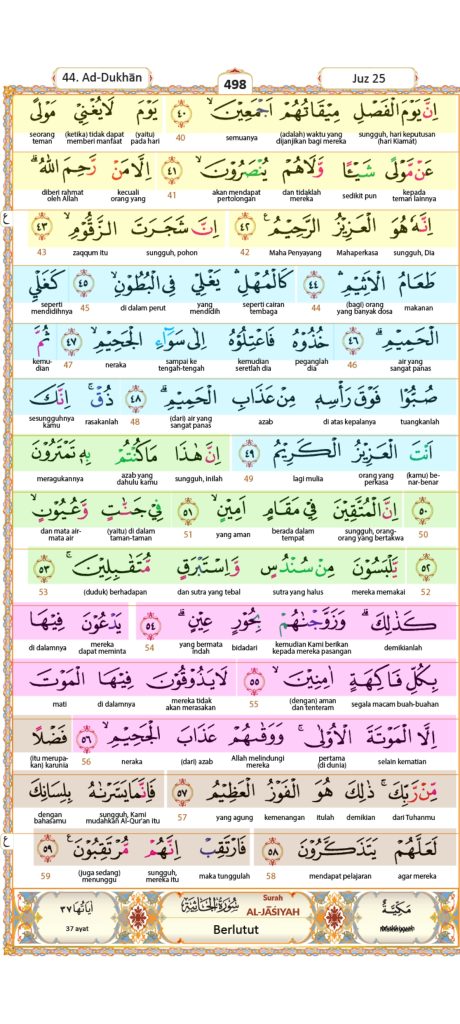 44. Ad-Dukhān
498
Juz 25
اِنَّ يَوْمَ الْفَصْلِ مِيْقَاتُهُمْ اَجْمَعِيْنَ ۙ ٤٠ يَوْمَ لَا يُغْنِيْ مَوْلًى
sungguh, hari keputusan (hari Kiamat) (adalah) waktu yang dijanjikan bagi mereka semuanya 40 (yaitu) pada hari (ketika) tidak dapat memanfaat seorang teman
عَنْ مَّوْلًى شَيْـًٔا وَّلَا هُمْ يُنْصَرُوْنَ ۙ ٤١ اِلَّا مَنْ رَّحِمَ اللّٰهُ ۗ
kepada teman lainnya sedikit pun dan tidaklah mereka akan mendapat pertolongan 41 kecuali orang yang diberi rahmat oleh Allah
ع
اِنَّهٗ هُوَ الْعَزِيْزُ الرَّحِيْمُ ࣖ ٤٢ اِنَّ شَجَرَتَ الزَّقُّوْمِ ۙ ٤٣
sungguh, Dia Mahaperkasa Maha Penyayang 42 sungguh, pohon zaqqum itu 43
طَعَامُ الْاَثِيْمِ ۛ ٤٤ كَالْمُهْلِ ۛ يَغْلِيْ فِى الْبُطُوْنِ ۙ ٤٥ كَغَلْيِ
makanan (bagi) orang yang banyak dosa 44 seperti cairan tembaga yang mendidih di dalam perut 45 seperti mendidihnya
الْحَمِيْمِ ۗ ٤٦ خُذُوْهُ فَاعْتِلُوْهُ اِلٰى سَوَاۤءِ الْجَحِيْمِ ۙ ٤٧ ثُمَّ
air yang sangat panas 46 peganglah dia kemudian seretlah dia sampai ke tengah-tengah neraka 47 kemu-dian
صُبُّوْا فَوْقَ رَأْسِهٖ مِنْ عَذَابِ الْحَمِيْمِ ۗ ٤٨ ذُقْ ۚ اِنَّكَ
tuangkanlah di atas kepalanya azab (dari) air yang sangat panas 48 rasakanlah sesungguhnya kamu
اَنْتَ الْعَزِيْزُ الْكَرِيْمُ ٤٩ اِنَّ هٰذَا مَا كُنْتُمْ بِهٖ تَمْتَرُوْنَ
(kamu) be-nar-benar orang yang perkasa lagi mulia 49 sungguh, inilah azab yang dahulu kamu meragukannya
٥٠ اِنَّ الْمُتَّقِيْنَ فِيْ مَقَامٍ اَمِيْنٍ ۙ ٥١ فِيْ جَنّٰتٍ وَّعُيُوْنٍ ۙ
50 sungguh, orang-orang yang bertakwa berada dalam tempat yang aman 51 (yaitu) di dalam taman-taman dan mata air-mata air
٥٢ يَّلْبَسُوْنَ مِنْ سُنْدُسٍ وَّاِسْتَبْرَقٍ مُّتَقٰبِلِيْنَ ۚ ٥٣
52 mereka memakai sutra yang halus dan sutra yang tebal (duduk) berhadapan 53
كَذٰلِكَ ۗ وَزَوَّجْنٰهُمْ بِحُوْرٍ عِيْنٍ ۗ ٥٤ يَدْعُوْنَ فِيْهَا
demikianlah kemudian Kami berikan kepada mereka pasangan bidadari yang bermata indah 54 mereka dapat meminta di dalamnya
بِكُلِّ فَاكِهَةٍ اٰمِنِيْنَ ۙ ٥٥ لَا يَذُوْقُوْنَ فِيْهَا الْمَوْتَ
segala macam buah-buahan (dengan) aman dan tenteram 55 mereka tidak akan merasakan di dalamnya mati
اِلَّا الْمَوْتَةَ الْاُوْلٰى ۚ وَوَقٰىهُمْ عَذَابَ الْجَحِيْمِ ۙ ٥٦ فَضْلًا
selain kematian pertama (di dunia) Allah melindungi mereka (dari) azab neraka 56 (itu merupa-kan) karunia
مِّنْ رَّبِّكَ ۚ ذٰلِكَ هُوَ الْفَوْزُ الْعَظِيْمُ ٥٧ فَاِنَّمَا يَسَّرْنٰهُ بِلِسَانِكَ
dari Tuhanmu demikian itulah kemenangan yang agung 57 sungguh, Kami mudahkan Al-Qur'an itu dengan bahasamu
ع
لَعَلَّهُمْ يَتَذَكَّرُوْنَ ٥٨ فَارْتَقِبْ اِنَّهُمْ مُّرْتَقِبُوْنَ ࣖ ٥٩
agar mereka mendapat pelajaran 58 maka tunggulah sungguh, mereka itu (juga sedang) menunggu 59
مَكِّيَّةٌ
سُوْرَةُ الْجَاثِيَةِ
Surah
AL-JĀṠIYAH
اٰيَاتُهَا ٣٧
37 ayat
Berlutut